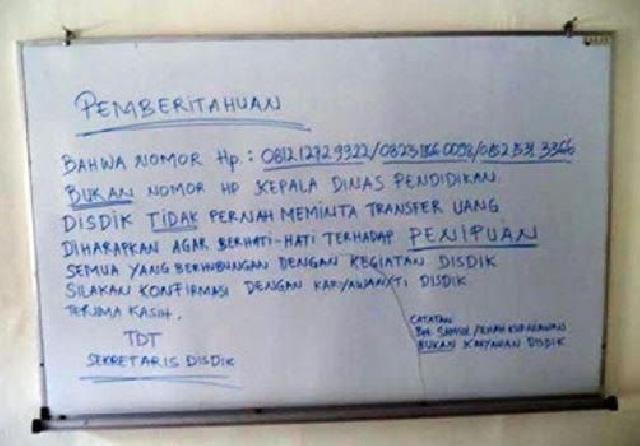 PEMBERITAHUAN
BAHWA NOMOR Hp.: 0812 1272 9322/0823 1166 0098/0852 531 3366
BUKAN NOMOR HP KEPALA DINAS PENDIDIKAN
DISDIK TIDAK PERNAH MEMINTA TRANSFER UANG
DIHARAPKAN AGAR BERHATI-HATI TERHADAP PENIPUAN
SEMUA YANG BERHUBUNGAN DENGAN KEGIATAN DISDIK
SILAKAN KONFIRMASI DENGAN KARYAWAN/TI DISDIK
TERIMA KASIH.
TDT
SEKRETARIS DISDIK
CATATAN
BUKAN KARYAWAN DISDIK